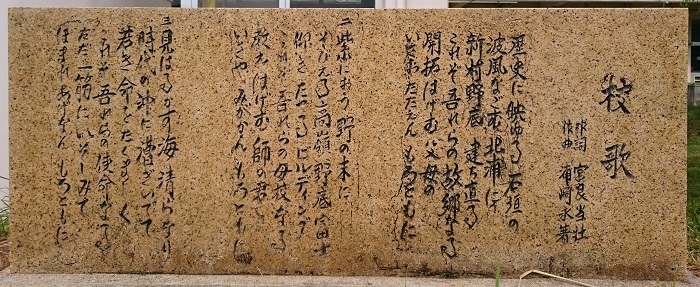 校歌
作詞 宮良当壮
作曲 崎永著
歴史に映ゆる石垣の
波風なぎし北浦に
新村野底建ち直る
これぞ吾れらの故郷なる
開拓はげむ父母の
いさおたたえん もろともに
二 紫におう野の末に
そびえる高嶺野底富士
仰ぎてたてるビルディング
これぞ吾れらの母校なる
教えはげむ師の君と
いざや みがかん もろともに
三 見はるかす海清らなり
時代の沖に漕ぎいでて
若き命をたくましく
これぞ吾れらの使命なる
ただ一筋にいそしみて
ほまれあげなん もろともに